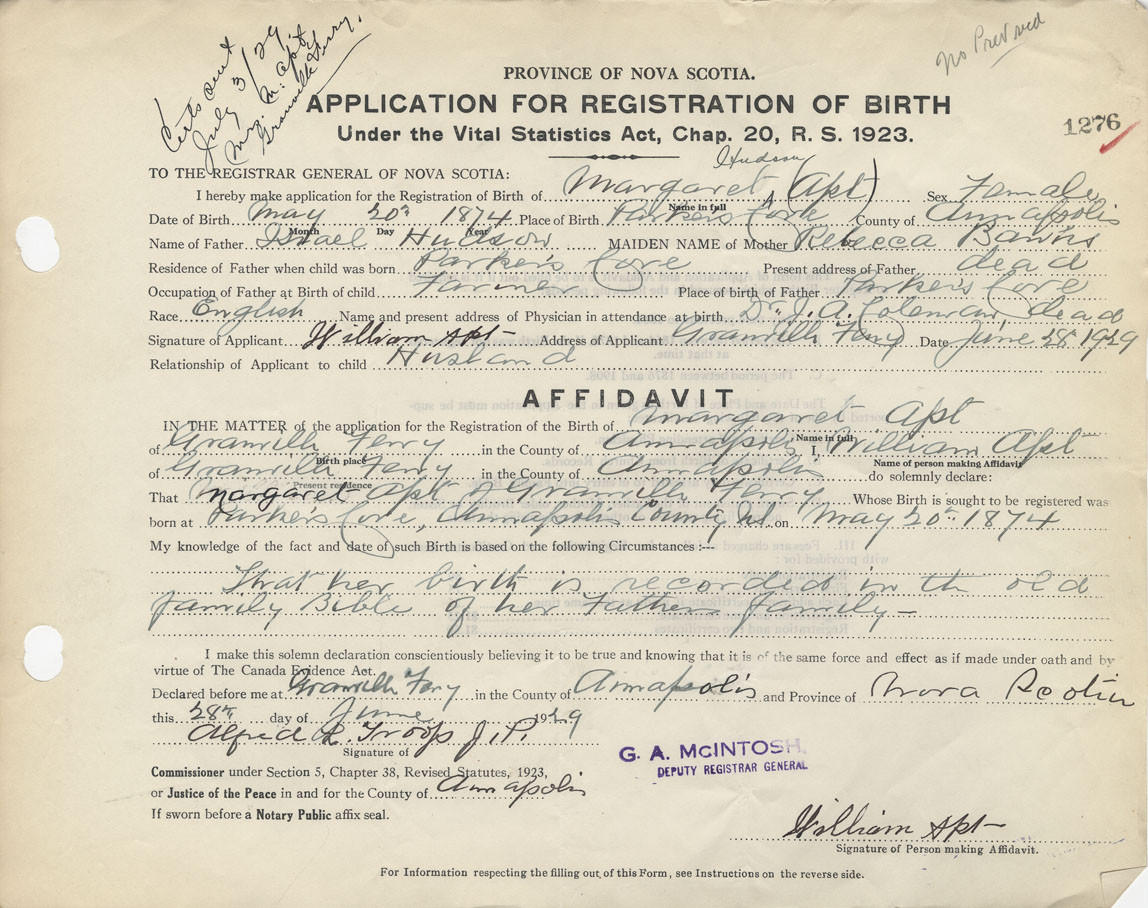 Certs sent
July 3/29
Mrs. M. Apt
Granville Ferry.
No Prev red
PROVINCE OF NOVA SCOTIA.
APPLICATION FOR REGISTRATION OF BIRTH
Under the Vital Statistics Act, Chap. 20, R. S. 1923.
1276
TO THE REGISTRAR GENERAL OF NOVA SCOTIA:
Hudson
I hereby make application for the Registration of Birth of Margaret (Apt) Sex Female
Name in full
Date of Birth May 20th 1874 Place of Birth Parkers Cove County of Annapolis
Month Day Year
Name of Father Israel Hudson MAIDEN NAME of Mother Rebecca
Residence of Father when child was born Parker's Cove Present address of Father dead
Occupation of Father at Birth of child Farmer Place of birth of Father Parker's Cove
Race English Name and present address of Physician in attendance at birth Dr. J. A. Coleman dead
Signature of Applicant William Apt Address of Applicant Granville Ferry Date June 28 1929
Relationship of Applicant to child Husband
AFFIDAVIT
IN THE MATTER of the application for the Registration of the Birth of Margaret Apt
Name in full
of Granville Ferry in the County of Annapolis I, William Apt
Birth place Name of person making Affidavit
of Granville Ferry in the County of Annapolis do solemnly declare:
Present residence
That Margaret Apt of Granville Ferry Whose Birth is sought to be registered was
born at Parker's Cove, Annapolis County NS on May 20th 1874
My knowledge of the fact and date of such Birth is based on the following Circumstances :---
That her birth is recorded in the old
family Bible of her Fathers family—
I make this solemn declaration conscientiously believing it to be true and knowing that it is of the same force and effect as if made under oath and by
virtue of The Canada Evidence Act.
Declared before me at Granville Ferry in the County of Annapolis and Province of Nova Scotia
this 28th day of June 1929
Alfred R. Troop J.P.
Signature of
G. A. McINTOSH,
DEPUTY REGISTRAR GENERAL
Commissioner under Section 5, Chapter 38, Revised Statutes, 1923,
or Justice of the Peace in and for the County of Annapolis
If sworn before a Notary Public affix seal.
William Apt
Signature of Person making Affidavit.
For Information respecting the filling out of this Form, see Instructions on the reverse side.